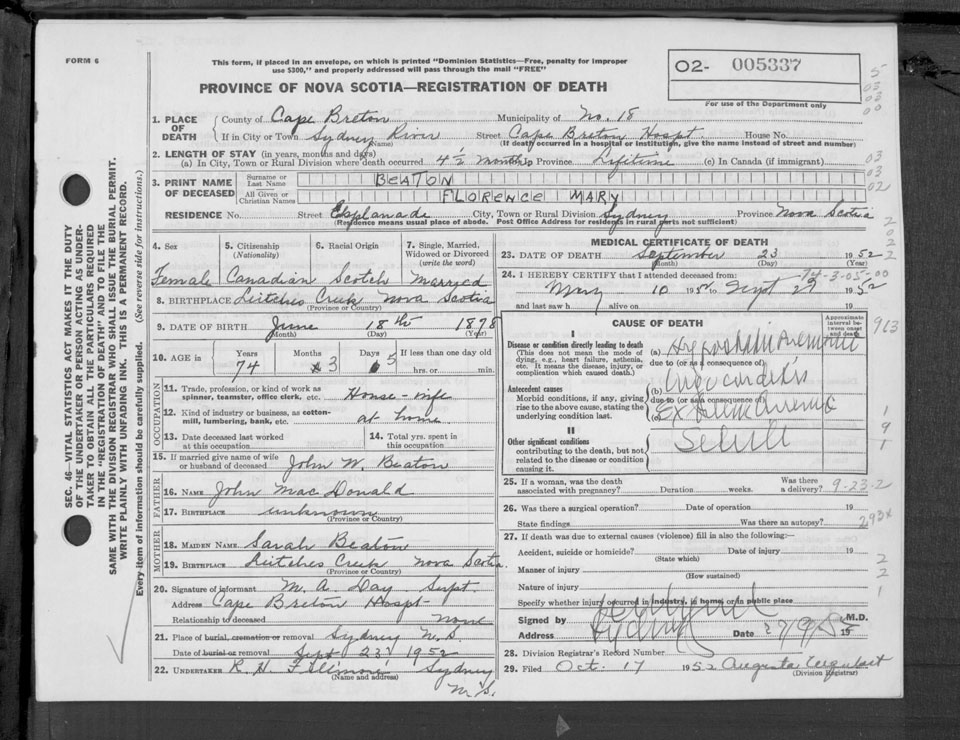 FORM 6
This form, if placed in an envelope, on which is printed "Dominion Statistics—Free, penalty for improper
use $300," and properly addressed will pass through the mail "FREE"
02- 005337
For use of the Department only
PROVINCE OF NOVA SCOTIA—REGISTRATION OF DEATH
1. PLACE OF DEATH County of Cape Breton Municipality of No. 18
If in City or Town Sydney River Street Cape Breton Hospt. House No.
(Name) (If death occurred in a hospital or institution, give the name instead of street and number)
2. LENGTH OF STAY (in years, months and days)
(a) In City, Town or Rural Division where death occurred 4½ months Province Lifetime (c) In Canada (if immigrant)
3. PRINT NAME OF DECEASED Surname or Last Name BEATON
All Given or Christian Names FLORENCE MARY
RESIDENCE No. Street Esplanade City, Town or Rural Division Sydney Province Nova Scotia
(Residence means usual place of abode. Post Office Address for residents in rural parts not sufficient)
4. Sex 5. Citizenship (Nationality) 6. Racial Origin 7. Single, Married, Widowed or Divorced (write the word)
Female Canadian Scotch Married
8. BIRTHPLACE Leitches Creek Nova Scotia
(Province or Country)
9. DATE OF BIRTH June 18th 1878
(Month) (Day) (Year)
10. AGE in Years Months Days If less than one day old
74 3 5 hrs. or min.
OCCUPATION
11. Trade, profession, or kind of work as spinner, teamster, office clerk, etc. House-wife
12. Kind of industry or business, as cotton-mill, lumbering, bank, etc. at home
13. Date deceased last worked at this occupation 14. Total yrs. spent in this occupation
15. If married give name of wife or husband of deceased John W. Beaton
FATHER
16. NAME John MacDonald
17. BIRTHPLACE unknown
(Province or Country)
MOTHER
18. MAIDEN NAME Sarah Beaton
19. BIRTHPLACE Leitches Creek Nova Scotia
(Province or Country)
20. Signature of informant M. A. Day Supt.
Address Cape Breton Hospt
Relationship to deceased none
21. Place of burial, cremation or removal Sydney N.S.
Date of burial or removal Sept 23rd 1952
22. UNDERTAKER R. H. Fillmore Sydney
(Name and address) N.S.
MEDICAL CERTIFICATE OF DEATH
23. DATE OF DEATH September 23 1952
(Month) (Day) (Year)
24. I HEREBY CERTIFY that I attended deceased from: 74-3-05-00
May 10 1952 to Sept 1952
and last saw h alive on 19
CAUSE OF DEATH
Approximate interval between onset and death
I
Disease or condition directly leading to death
(This does not mean the mode of dying, e.g., heart failure, asthenia, etc. It means the disease, injury, or complication which caused death.)
(a)
due to (or as a consequence of)
Antecedent causes
Morbid conditions, if any, giving rise to the above cause, stating the underlying condition last.
(b)
due to (or as a consequence of)
(c)
II
Other significant conditions
contributing to the death, but not related to the disease or condition causing it.
25. If a woman, was the death associated with pregnancy? Duration weeks. Was there a delivery? 9-23-2
26. Was there a surgical operation? Date of operation 19
State findings Was there an autopsy?
27. If death was due to external causes (violence) fill in also the following:—
Accident, suicide or homicide? Date of injury 19
(State which)
Manner of injury
(How sustained)
Nature of injury
Specify whether injury occurred in industry, in home, or in public place
Signed by M.D.
Address Sydney Date 19
28. Division Registrar's Record Number
29. Filed Oct. 17 1952 Augusta
(Division Registrar)
SEC. 46—VITAL STATISTICS ACT MAKES IT THE DUTY
OF THE UNDERTAKER OR PERSON ACTING AS UNDER-
TAKER TO OBTAIN ALL THE PARTICULARS REQUIRED
IN THE "REGISTRATION OF DEATH" AND TO FILE THE
SAME WITH THE DIVISION REGISTRAR WHO SHALL ISSUE THE BURIAL PERMIT.
WRITE PLAINLY WITH UNFADING INK. THIS IS A PERMANENT RECORD.
Every item of information should be carefully supplied. (See reverse side for instructions.)